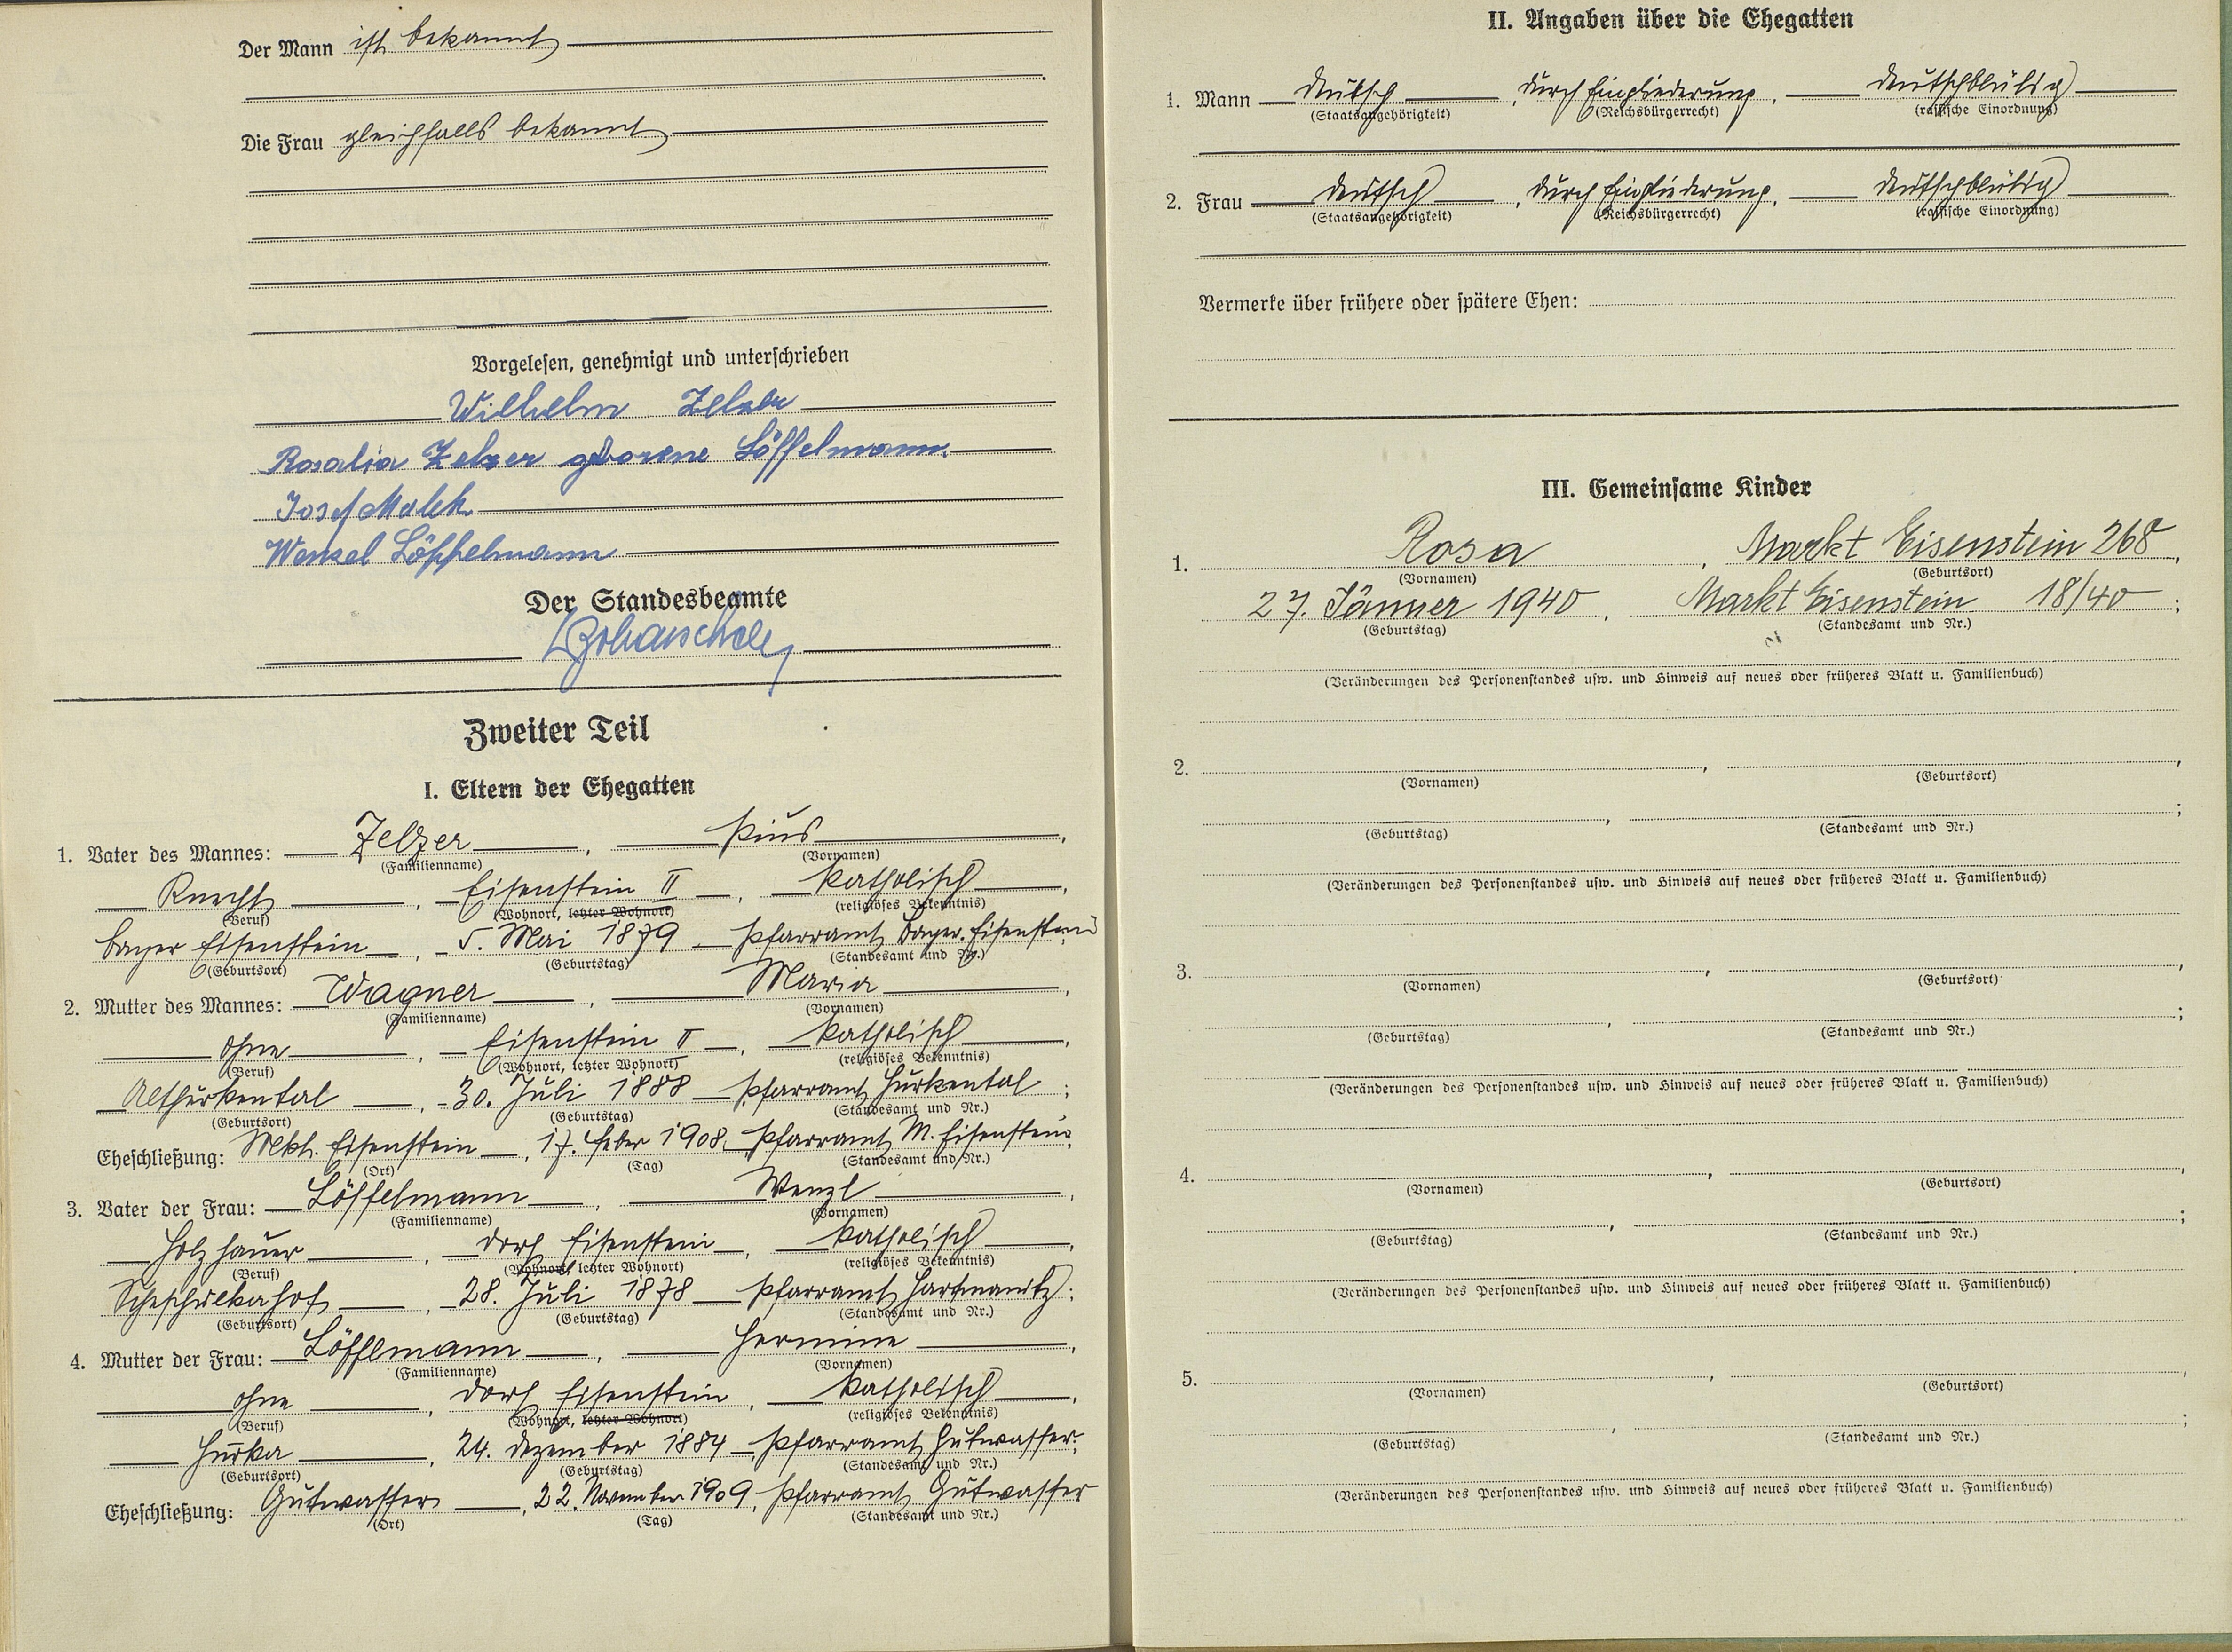 Der Mann ist bekannt
Die Frau gleichfalls bekannt
Vorgelesen, genehmigt und unterschrieben
Wilhelm Zelzer
Rosalia Zelzer geborene Löffelmann.
Josef Malek
Wenzel Löffelmann
Der Standesbeamte
Zweiter Teil
I. Eltern der Ehegatten
1. Vater des Mannes: Zelzer, Pius,
(Familienname) (Vornamen)
Knecht, Eisenstein II, katholisch,
(Beruf) (Wohnort, letzter Wohnort) (religiöses Bekenntnis)
Bayer Eisenstein, 5. Mai 1879 Pfarramt Bayer. Eisenstein
(Geburtsort) (Geburtstag) (Standesamt und Nr.)
2. Mutter des Mannes: Wagner, Maria,
(Familienname) (Vornamen)
ohne, Eisenstein II, katholisch,
(Beruf) (Wohnort, letzter Wohnort) (religiöses Bekenntnis)
Althürkental, 30. Juli 1888 Pfarramt Hurkental;
(Geburtsort) (Geburtstag) (Standesamt und Nr.)
Eheschließung: Mkt. Eisenstein, 17. Feber 1908, Pfarramt M. Eisenstein.
(Ort) (Tag) (Standesamt und Nr.)
3. Vater der Frau: Löffelmann, Wenzl,
(Familienname) (Vornamen)
Holzhauer, Dorf Eisenstein, katholisch,
(Beruf) (Wohnort, letzter Wohnort) (religiöses Bekenntnis)
28. Juli 1878 Pfarramt Hartmanitz;
(Geburtsort) (Geburtstag) (Standesamt und Nr.)
4. Mutter der Frau: Löfflmann, Hermine,
(Familienname) (Vornamen)
ohne, Dorf Eisenstein, katholisch,
(Beruf) (Wohnort, letzter Wohnort) (religiöses Bekenntnis)
Hurka, 24. Dezember 1884, Pfarramt Gutwasser;
(Geburtsort) (Geburtstag) (Standesamt und Nr.)
Eheschließung: Gutwasser, 22. November 1909, Pfarramt Gutwasser
(Ort) (Tag) (Standesamt und Nr.)
II. Angaben über die Ehegatten
1. Mann deutsch, durch Eingliederung, deutschblütig
(Staatsangehörigkeit) (Reichsbürgerrecht) (rassische Einordnung)
2. Frau deutsch, durch Eingliederung, deutschblütig
(Staatsangehörigkeit) (Reichsbürgerrecht) (rassische Einordnung)
Vermerke über frühere oder spätere Ehen:
III. Gemeinsame Kinder
1. Rosa, Markt Eisenstein 268,
(Vornamen) (Geburtsort)
27. Jänner 1940, Markt Eisenstein 18/40;
(Geburtstag) (Standesamt und Nr.)
(Veränderungen des Personenstandes usw. und Hinweis auf neues oder früheres Blatt u. Familienbuch)
2. , ,
(Vornamen) (Geburtsort)
, ;
(Geburtstag) (Standesamt und Nr.)
(Veränderungen des Personenstandes usw. und Hinweis auf neues oder früheres Blatt u. Familienbuch)
3. , ,
(Vornamen) (Geburtsort)
, ;
(Geburtstag) (Standesamt und Nr.)
(Veränderungen des Personenstandes usw. und Hinweis auf neues oder früheres Blatt u. Familienbuch)
4. , ,
(Vornamen) (Geburtsort)
, ;
(Geburtstag) (Standesamt und Nr.)
(Veränderungen des Personenstandes usw. und Hinweis auf neues oder früheres Blatt u. Familienbuch)
5. , ,
(Vornamen) (Geburtsort)
, ;
(Geburtstag) (Standesamt und Nr.)
(Veränderungen des Personenstandes usw. und Hinweis auf neues oder früheres Blatt u. Familienbuch)